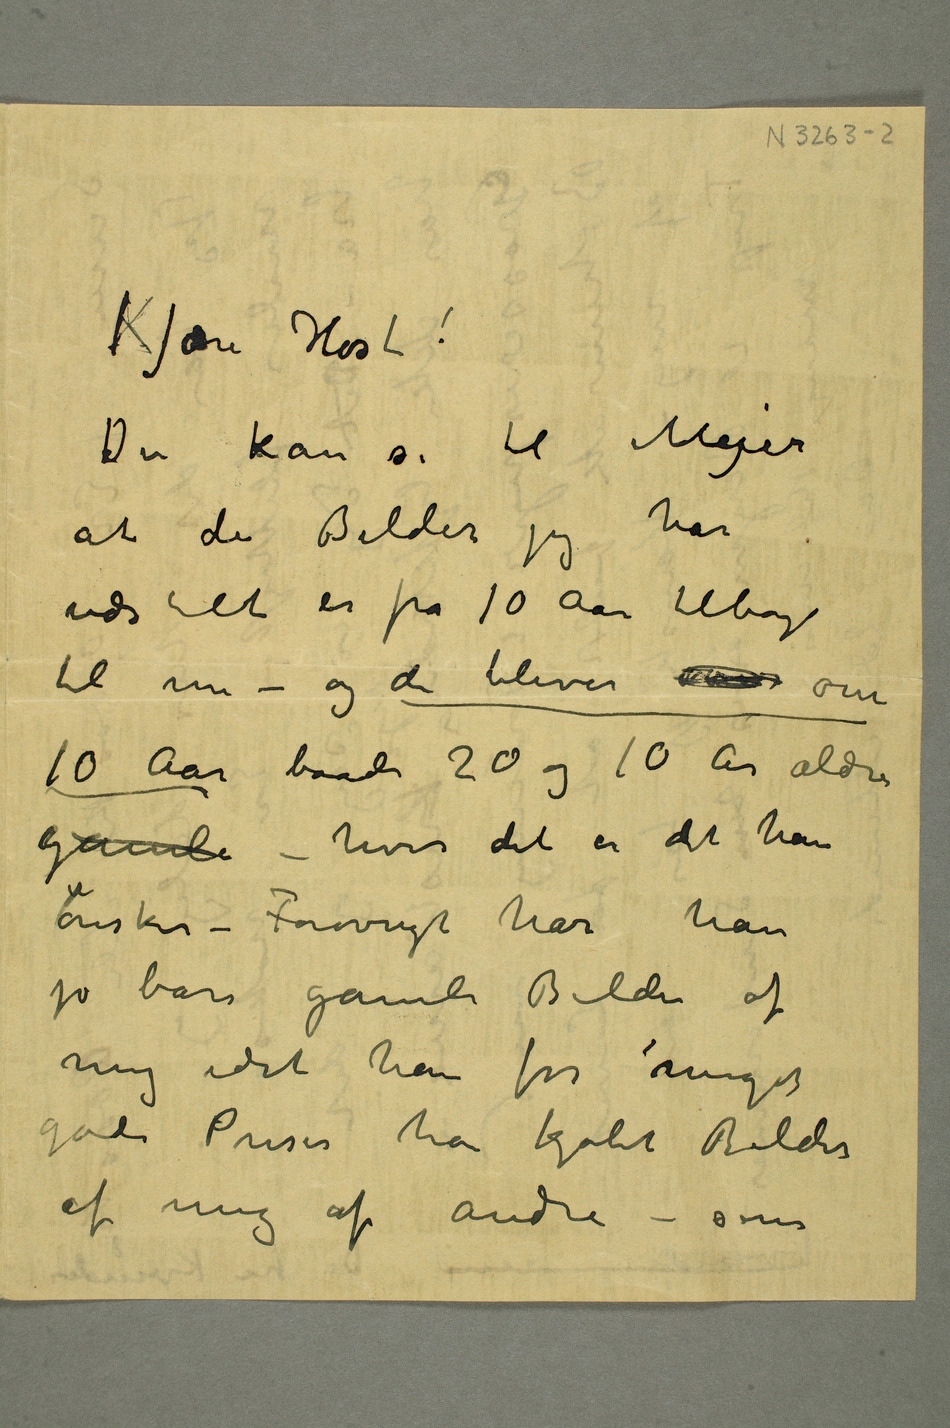 N 3263-2
Kjære Høst!
Du kan si til Mejer
at de Bilder jeg har
udstillt er fra 10 Aar tilbage
til nu – og de bliver om
10 Aar baade 20 og 10 År ældre
gamle – hvis det er det han
ønsker – Forøvrigt har han
jo bare gamle Bilder af
mig idet han for meget
gode Priser har kjøbt Bilder
af mig af andre – som